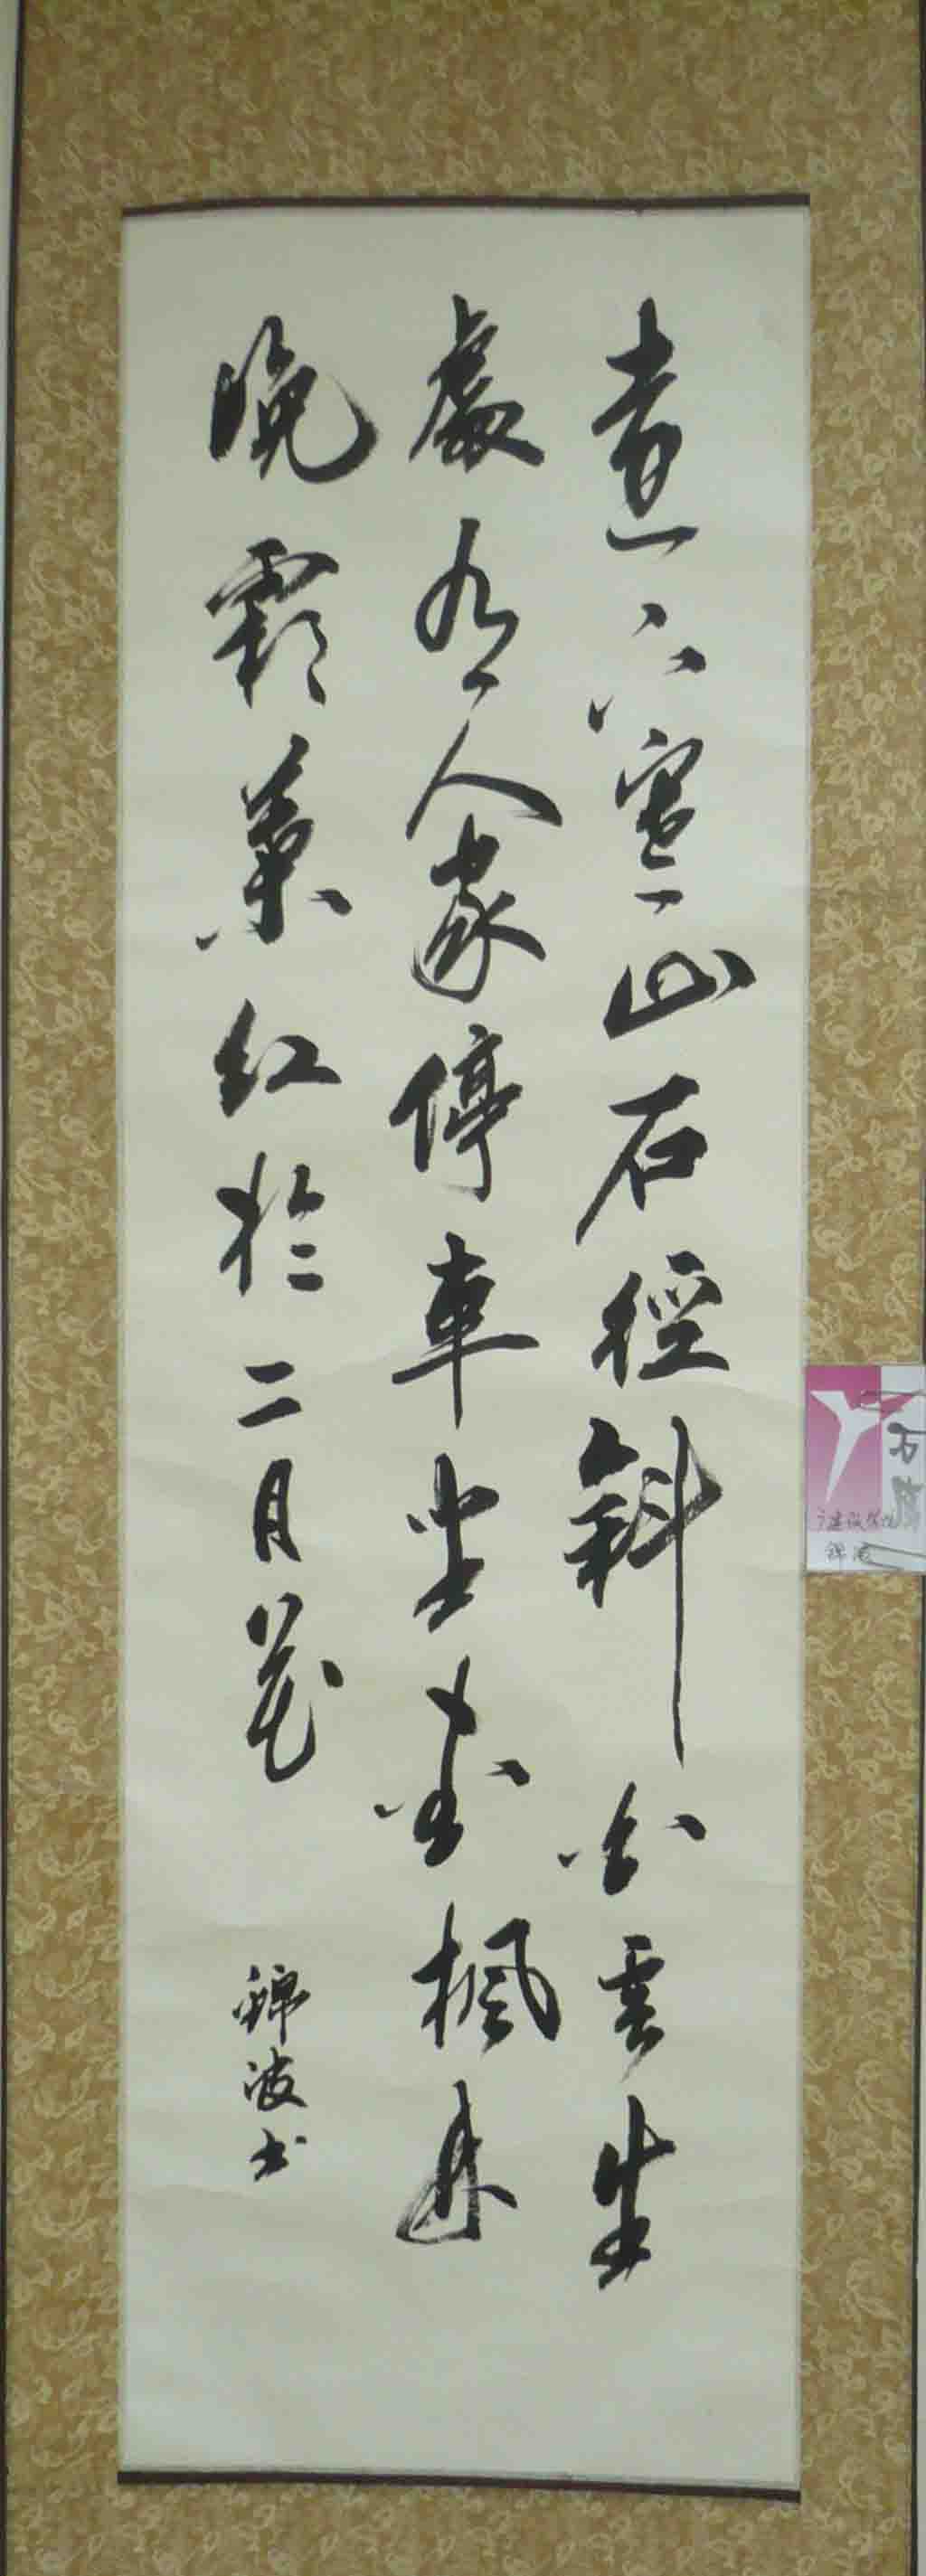 遠上寒山石徑斜白雲生
處有人家停車坐愛楓林
晚霜葉红於二月花
錦波书